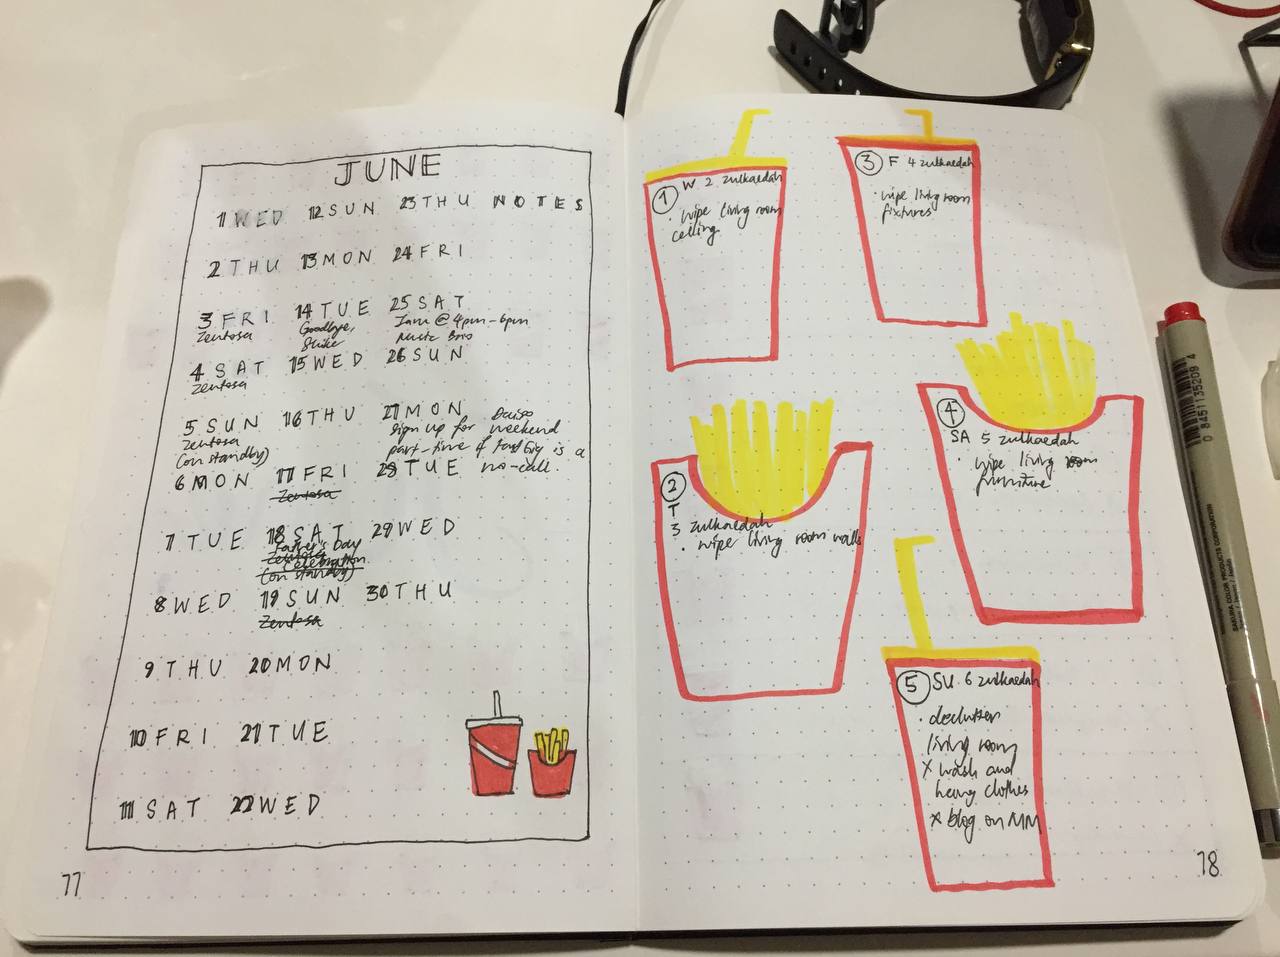 JUNE
1 WED 12 SUN 23 THU NOTES
2 THU 13 MON 24 FRI
3 FRI 14 TUE 25 SAT
Zentosa Goodbye, @ 4pm-6pm
4 SAT 15 WED 26 SUN
Zentosa
5 SUN 16 THU 27 MON Daiso
Zentosa sign up for weekend
(on standby) part-time if is a
6 MON 17 FRI 28 TUE no-call.
Zentosa
7 TUE 18 SAT 29 WED
Father's Day
Zentosa
celebration
(on standby)
8 WED 19 SUN 30 THU
Zentosa
9 THU 20 MON
10 FRI 21 TUE
11 SAT 22 WED
77
1 W 2 zulkaedah
· wipe living room
ceiling
3 F 4 zulkaedah
· wipe living room
fixtures
2
T
3 zulkaedah
· wipe living room walls
4
SA 5 zulkaedah
· wipe living room
furniture
5 SU 6 zulkaedah
· declutter
living room
x wash and
hang clothes
x blog on MM
78
0 8451135209 4
SAKURA COLOR PRODUCTS CORPORATION